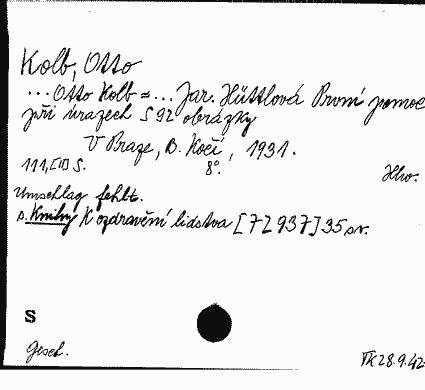 Kolb, Otto
... Otto Kolb = ... Jar. Hüttlová První pomoc
při úrazech S 92 obrázky
V Praze, B. Kočí, 1931.
111,[1] S. 8°. Hlw.
Umschlag fehlt.
s. Knihy K ozdravění lidstva [72937] 35 sv.
S
Gesch. 28.9.42